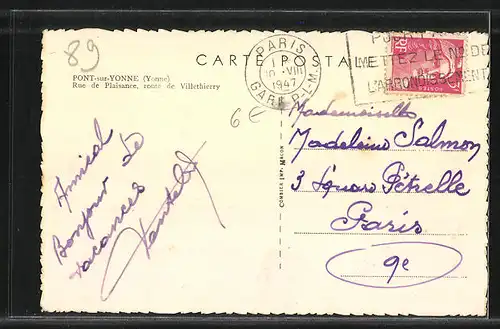 89
CARTE POSTALE
PONT-sur-YONNE (Yonne)
Rue de Plaisance, route de Villethierry
PARIS
VIII
1947
GARE P.L.M.
METTEZ LE No DE
L'ARRONDISSEMENT
POSTES
6€
Amical
Bonjour de
vacances
Mademoiselle
Madeleine Salmon
3 Square Pétrelle
Paris
9e
COMBIER IMP. MACON